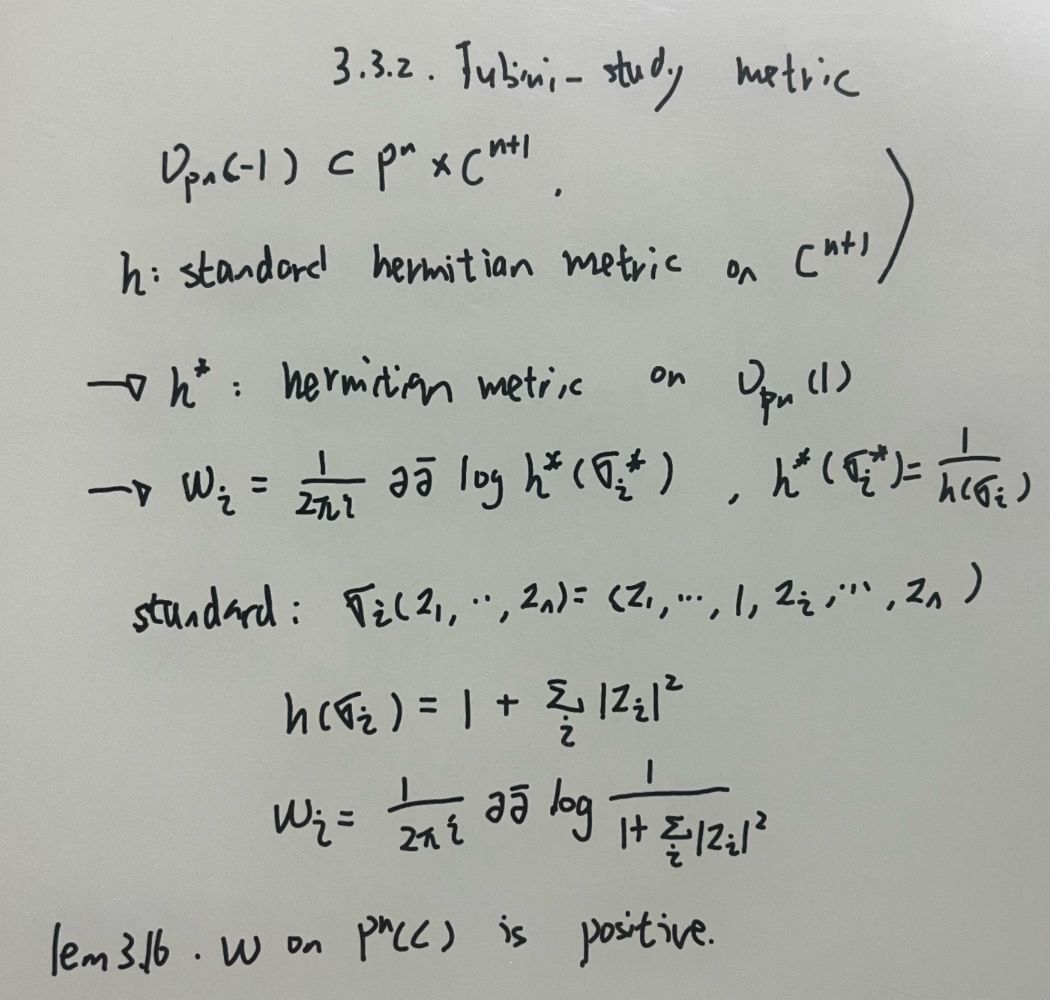 3.3.2. Fubini-study metric
O_{P^n}(-1) ⊂ P^n × C^{n+1}.
h: standard hermitian metric on C^{n+1}
→ h^* : hermitian metric on O_{P^n}(1)
→ ω_i = \frac{1}{2πi} ∂\bar{∂} log h^*(σ_i^*), h^*(σ_i^*) = \frac{1}{h(σ_i)}
standard: σ_i(z_1, .., z_n) = (z_1, ..., 1, z_i, ..., z_n)
h(σ_i) = 1 + Σ_i |z_i|^2
ω_i = \frac{1}{2πi} ∂\bar{∂} log \frac{1}{1 + Σ_i |z_i|^2}
lem 3.16. ω on P^n(C) is positive.